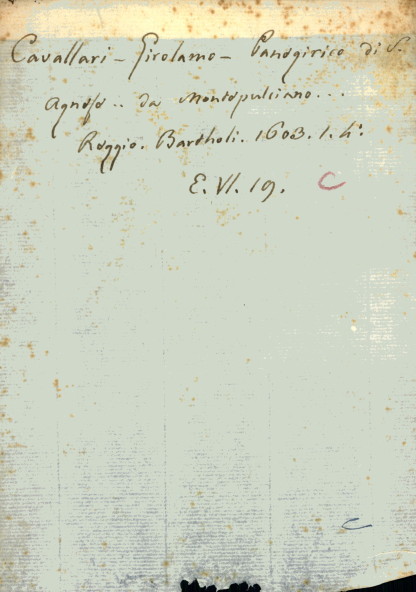 Cavallari - Girolamo - Panegirico di S.
Agnese .. da Montepulciano ...
Reggio. Bartholi. 1603. 1. 4°.
E. VI. 19. C
C